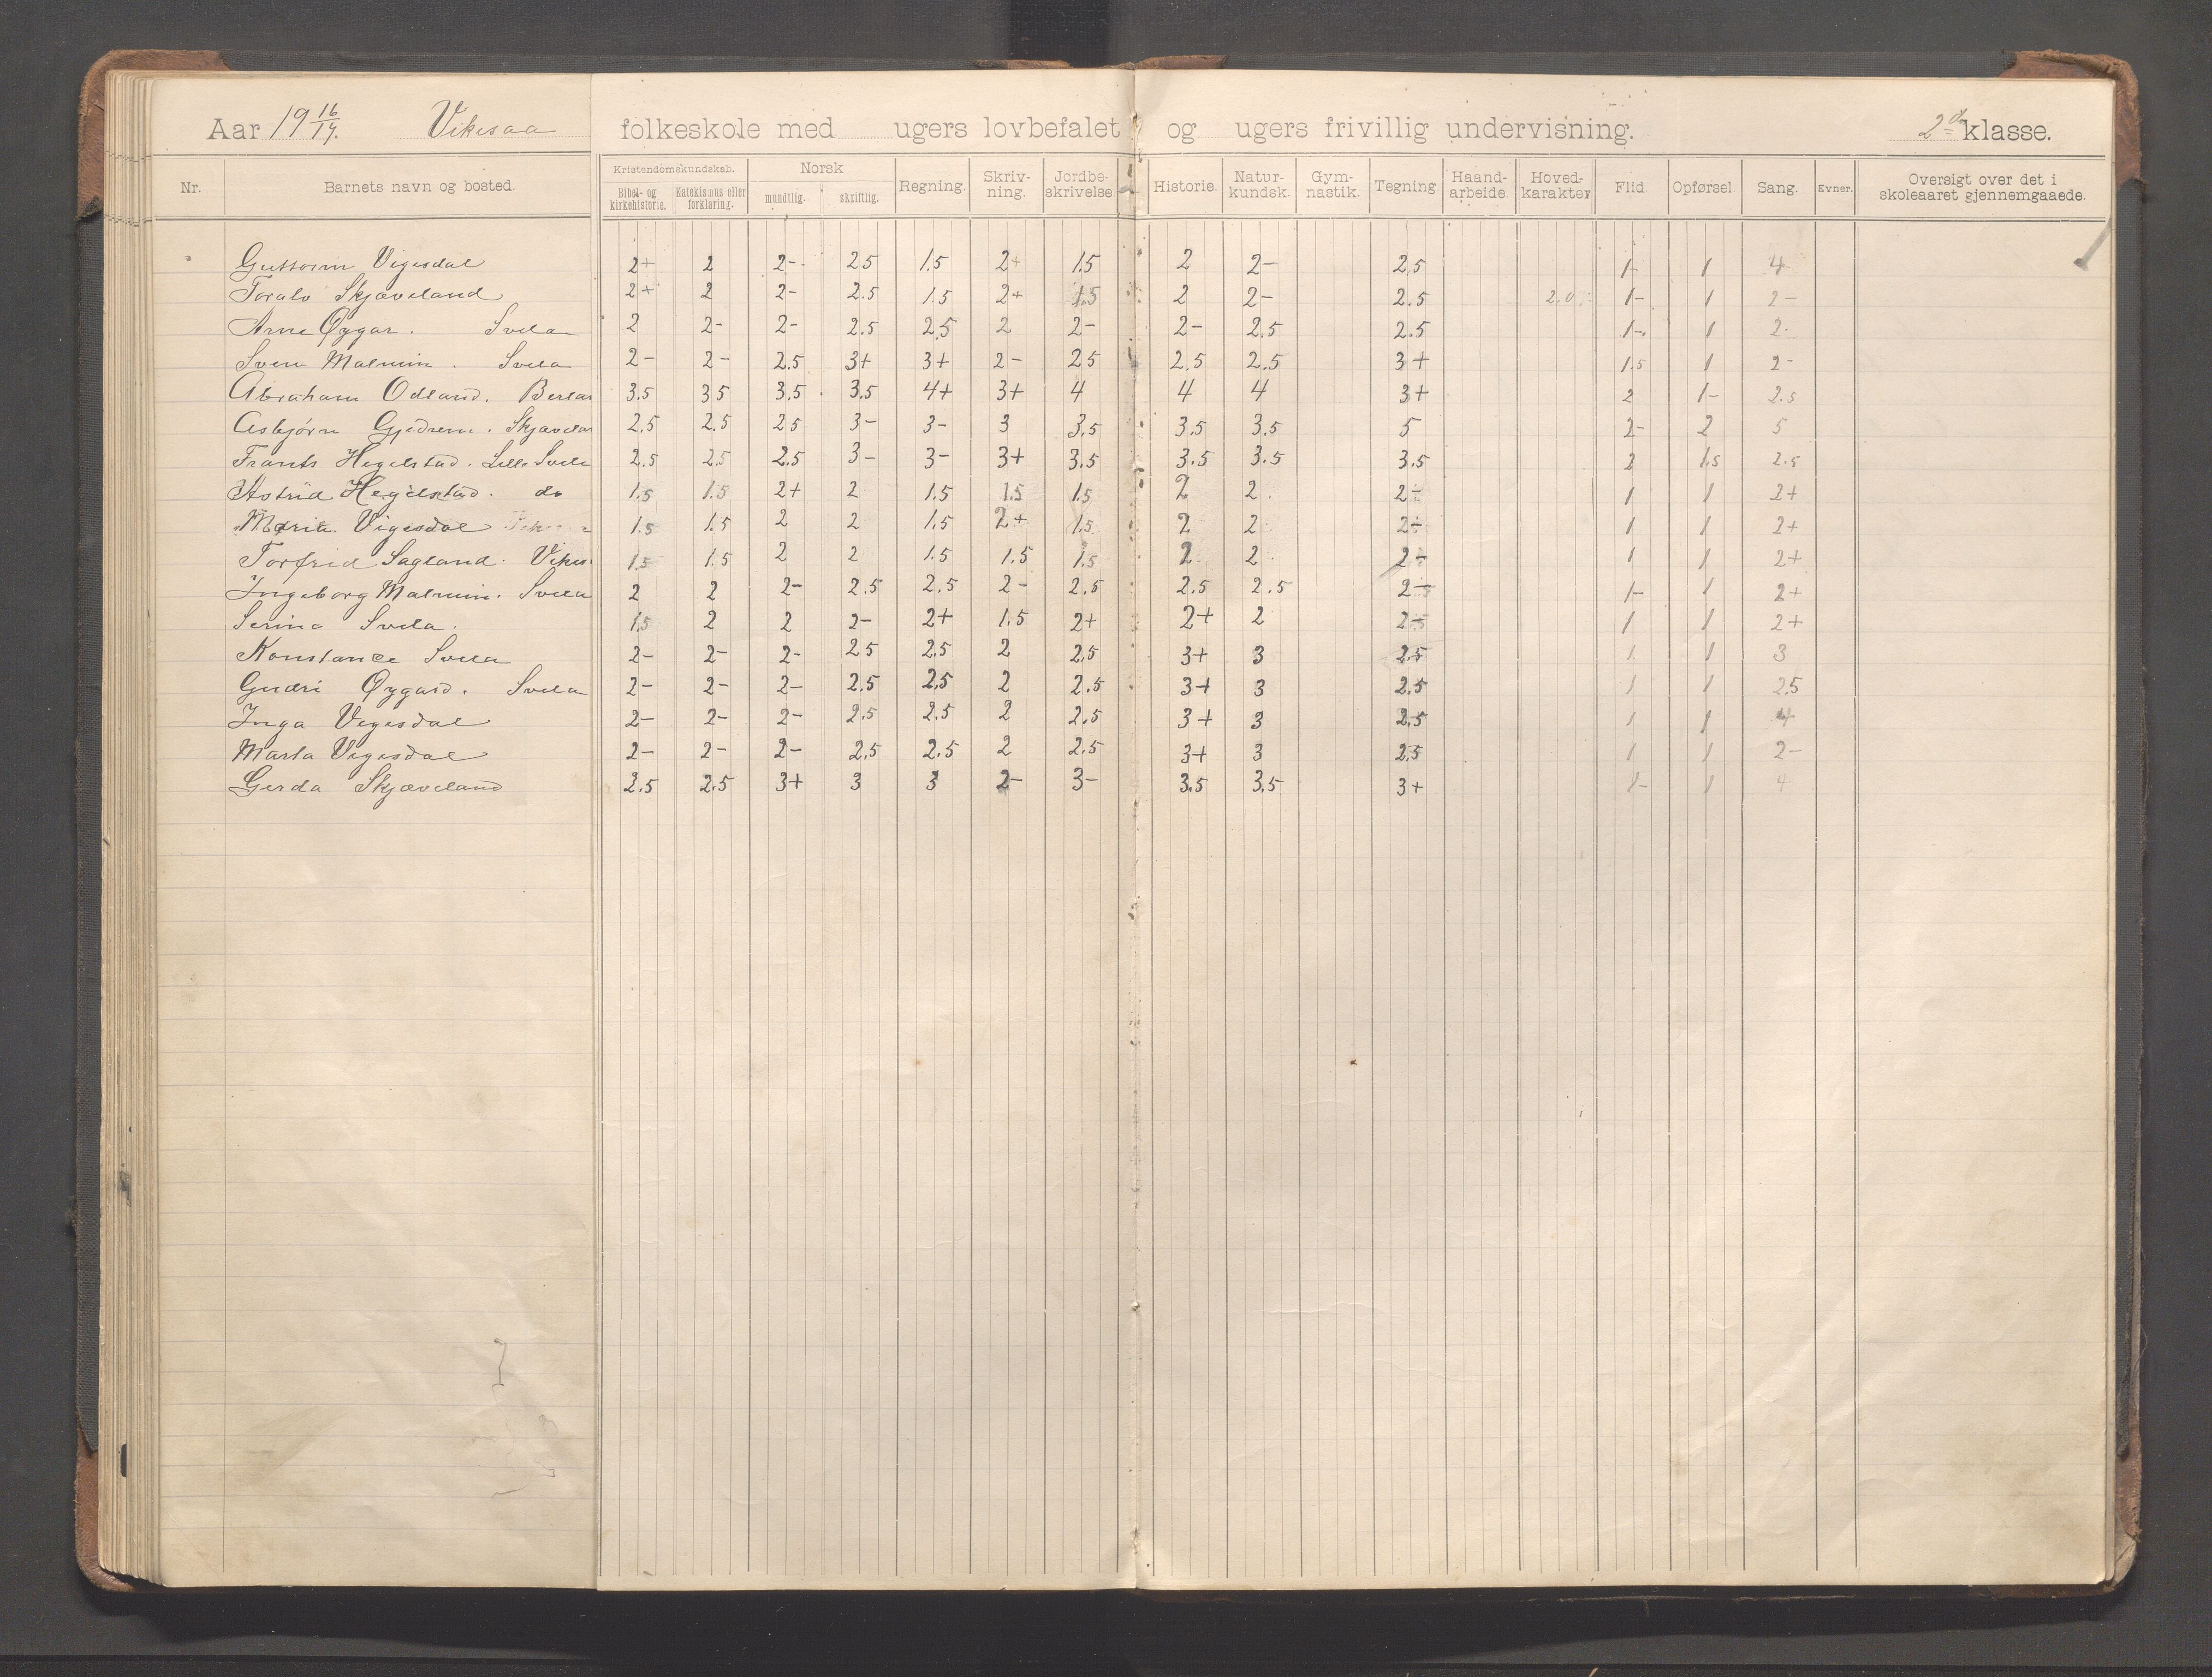 Aar 19 16/17. Vikesaa folkeskole med ugers lovbefalet og ugers frivillig undervisning. 2d klasse.
Nr. Barnets navn og bosted. Kristendomskundskab. Bibel- og kirkehistorie. Katekismus eller forklaring. Norsk mundtlig. skriftlig. Regning. Skriv-ning. Jordbe-skrivelse. Historie. Natur-kundsk. Gym-nastik. Tegning. Haand-arbeide. Hoved-karakter Flid. Opførsel. Sang. Evner. Oversigt over det i skoleaaret gjennemgaaede.
Guttorm Vigesdal 2+ 2 2- 2.5 1.5 2+ 1.5 2 2- 2.5 1- 1 4
Toralv Skjæveland 2+ 2 2- 2.5 1.5 2+ 1.5 2 2- 2.5 2.0 1- 1 2-
Arne Øygar. Svela 2 2- 2- 2.5 2.5 2 2- 2- 2.5 2.5 1- 1 2-
Sven Malmin. Svela 2- 2- 2.5 3+ 3+ 2- 2.5 2.5 2.5 3+ 1.5 1 2-
Abraham Odland. 3.5 3.5 3.5 3.5 4+ 3+ 4 4 4 3+ 2 1- 2.5
Asbjørn Gjedrem. Skjævelan 2.5 2.5 2.5 3- 3- 3 3.5 3.5 3.5 5 2- 2 5
Frants Hegelstad. Lille Svela 2.5 2.5 2.5 3- 3- 3+ 3.5 3.5 3.5 3.5 2 1.5 2.5
Astrid Hegelstad. do 1.5 1.5 2+ 2 1.5 1.5 1.5 2 2 2- 1 1 2+
Maria Vigesdal 1.5 1.5 2 2 1.5 2+ 1.5 2 2 2- 1 1 2+
Torfrid Sagland. Vikes 1.5 1.5 2 2 1.5 1.5 1.5 2 2 2- 1 1 2+
Ingeborg Malmin. Svela 2 2 2- 2.5 2.5 2- 2.5 2.5 2.5 2- 1- 1 2+
Serina Svela. 1.5 2 2 2- 2+ 1.5 2+ 2+ 2 1 1 2+
Konstance Svela 2- 2- 2- 2.5 2.5 2 2.5 3+ 3 2.5 1 1 3
Gudri Øygard. Svela 2- 2- 2- 2.5 2.5 2 2.5 3+ 3 2.5 1 1 2.5
Inga Vigesdal 2- 2- 2- 2.5 2.5 2 2.5 3+ 3 2.5 1 1 4
Marta Vigesdal 2- 2- 2- 2.5 2.5 2 2.5 3+ 3 2.5 1 1 2-
Gerda Skjæveland 2.5 2.5 3+ 3 3 2- 3- 3.5 3.5 3+ 1- 1 4